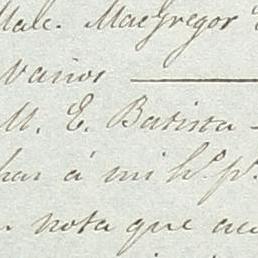 Male. MacGregor
Varios
M. E. Batista
har á mi h.º p.
nota que